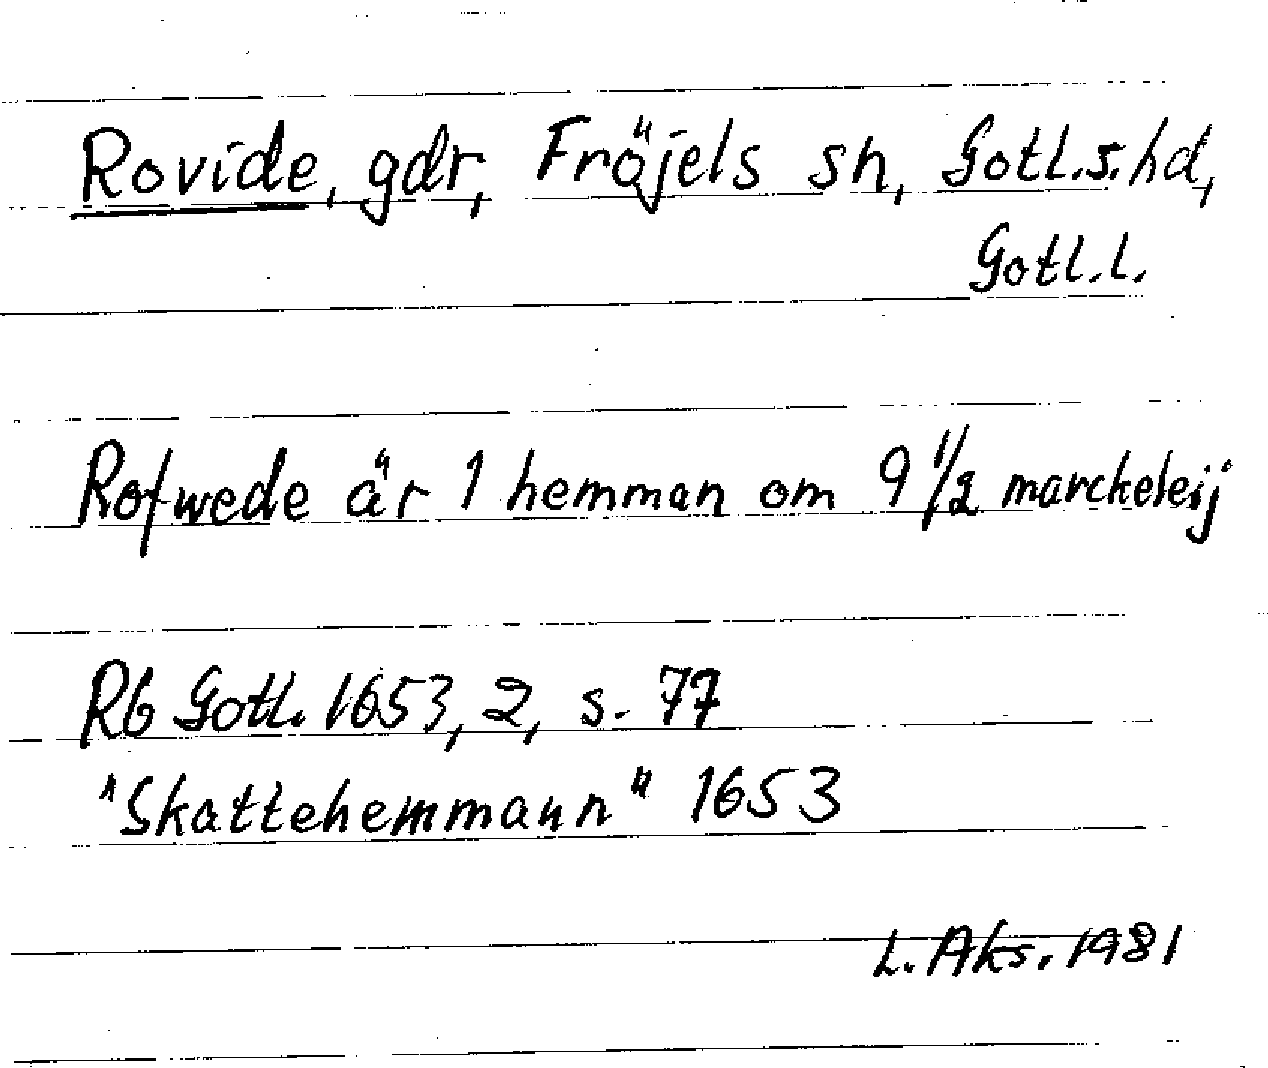 Rovide, gdr, Fröjels sn, Gotl.s.hd,
Gotl.l.
Rofwede är 1 hemman om 9 1/2 marckeleij
Rb Gotl. 1653, 2, s. 77
"Skattehemmann" 1653
L. Aks. 1981